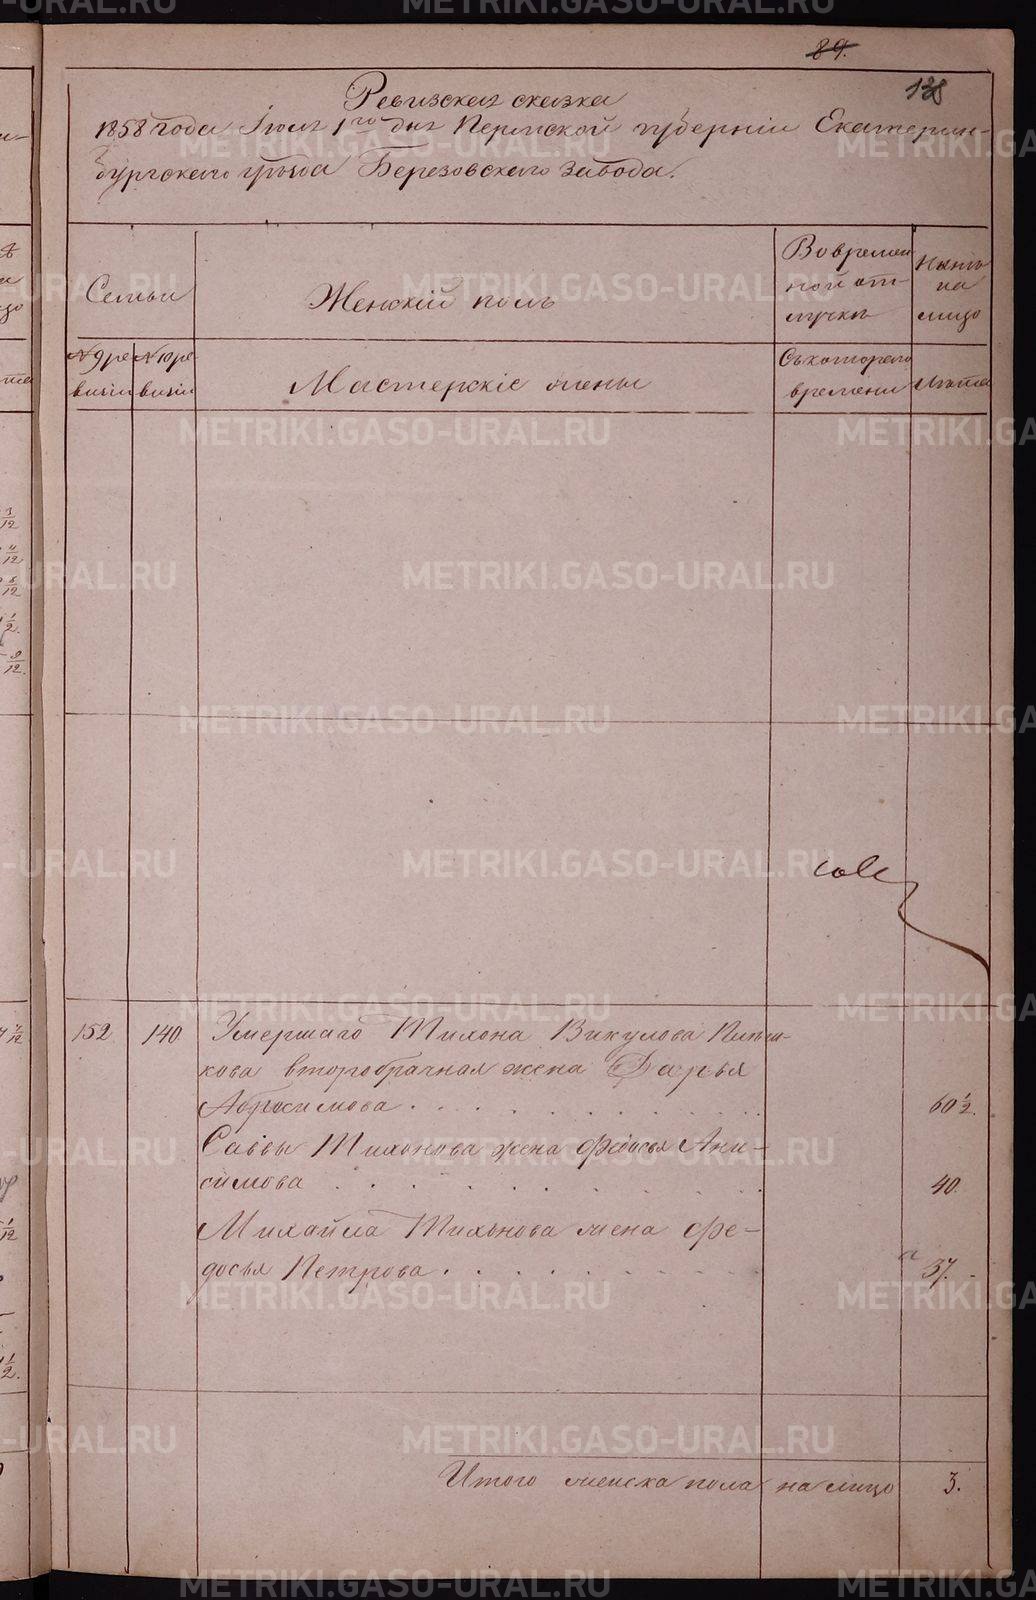 89.
138
Ревизская сказка
1858 года Июля 1го дня Пермской губерніи Екатерин-
бургскаго уѣзда Березовскаго завода.
Семьи
Женскій полъ
Во времен
ной от-
лучкѣ
Нынѣ
на
лицо
№ 9 ре
визіи
№ 10 ре
визіи
Мастерскіе жены
Съ котораго
времени
Лѣта
152
140.
Умершаго Тихона Викулова
кова второбрачная жена Дарья
Абросимова
60 1/2.
Саввы Тихонова жена Федосья Ани-
симова
40.
Михайла Тихонова жена Фе-
досья Петрова
37.
Итого женска пола на лицо 3.
METRIKI.GASO-URAL.RU